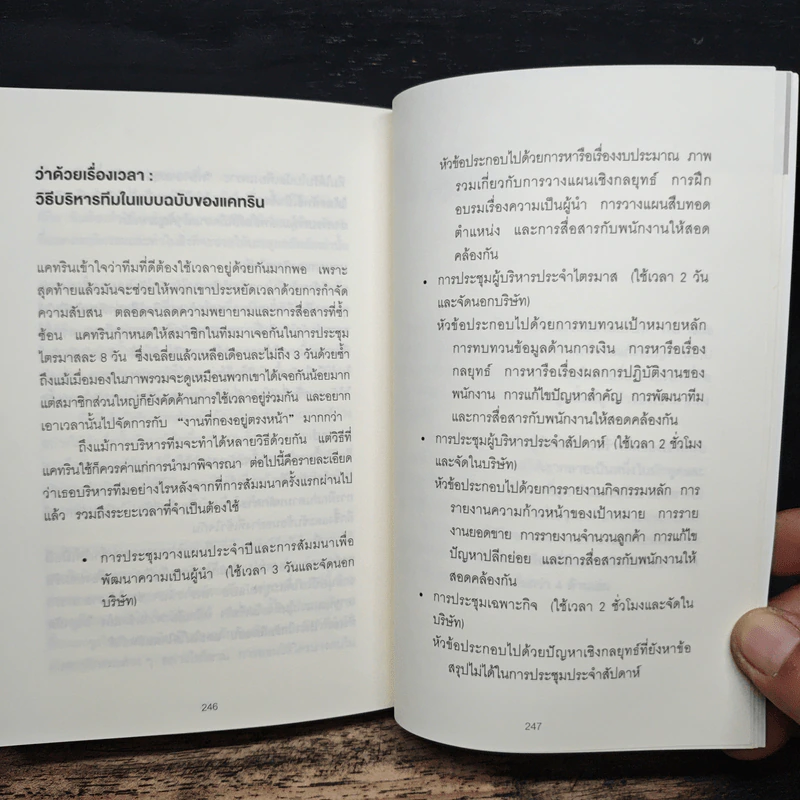 ว่าด้วยเรื่องเวลา :
วิธีบริหารทีมในแบบฉบับของแคทริน
แคทรินเข้าใจว่าทีมที่ดีต้องใช้เวลาอยู่ด้วยกันมากพอ เพราะ
สุดท้ายแล้วมันจะช่วยให้พวกเขาประหยัดเวลาด้วยการกำจัด
ความสับสน ตลอดจนลดความพยายามและการสื่อสารที่ซ้ำ
ซ้อน แคทรินกำหนดให้สมาชิกในทีมมาเจอกันในการประชุม
ไตรมาสละ 8 วัน ซึ่งเฉลี่ยแล้วเหลือเดือนละไม่ถึง 3 วันด้วยซ้ำ
ถึงแม้เมื่อมองในภาพรวมจะดูเหมือนพวกเขาได้เจอกันน้อยมาก
แต่สมาชิกส่วนใหญ่ก็ยังคัดค้านการใช้เวลาอยู่ร่วมกัน และอยาก
เอาเวลานั้นไปจัดการกับ “งานที่กองอยู่ตรงหน้า” มากกว่า
ถึงแม้การบริหารทีมจะทำได้หลายวิธีด้วยกัน แต่วิธีที่
แคทรินใช้ก็ควรค่าแก่การนำมาพิจารณา ต่อไปนี้คือรายละเอียด
ว่าเธอบริหารทีมอย่างไรหลังจากที่การสัมมนาครั้งแรกผ่านไป
แล้ว รวมถึงระยะเวลาที่จำเป็นต้องใช้
• การประชุมวางแผนประจำปีและการสัมมนาเพื่อ
พัฒนาความเป็นผู้นำ (ใช้เวลา 3 วันและจัดนอก
บริษัท)
246
หัวข้อประกอบไปด้วยการหารือเรื่องงบประมาณ ภาพ
รวมเกี่ยวกับการวางแผนเชิงกลยุทธ์ การฝึก
อบรมเรื่องความเป็นผู้นำ การวางแผนสืบทอด
ตำแหน่ง และการสื่อสารกับพนักงานให้สอด
คล้องกัน
• การประชุมผู้บริหารประจำไตรมาส (ใช้เวลา 2 วัน
และจัดนอกบริษัท)
หัวข้อประกอบไปด้วยการทบทวนเป้าหมายหลัก
การทบทวนข้อมูลด้านการเงิน การหารือเรื่อง
กลยุทธ์ การหารือเรื่องผลการปฏิบัติงานของ
พนักงาน การแก้ไขปัญหาสำคัญ การพัฒนาทีม
และการสื่อสารกับพนักงานให้สอดคล้องกัน
• การประชุมผู้บริหารประจำสัปดาห์ (ใช้เวลา 2 ชั่วโมง
และจัดในบริษัท)
หัวข้อประกอบไปด้วยการรายงานกิจกรรมหลัก การ
รายงานความก้าวหน้าของเป้าหมาย การราย
งานยอดขาย การรายงานจำนวนลูกค้า การแก้ไข
ปัญหาปลีกย่อย และการสื่อสารกับพนักงานให้
สอดคล้องกัน
• การประชุมเฉพาะกิจ (ใช้เวลา 2 ชั่วโมงและจัดใน
บริษัท)
หัวข้อประกอบไปด้วยปัญหาเชิงกลยุทธ์ที่ยังหาข้อ
สรุปไม่ได้ในการประชุมประจำสัปดาห์
247